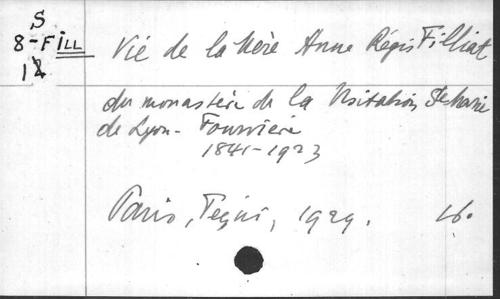 S
8-Fill
12
Vie de la Mère Anne Régis Filliat
du monastère de la Visitation Ste Marie
de Lyon-Fourvière
1841-1923
Paris, Téqui, 1929. 16°